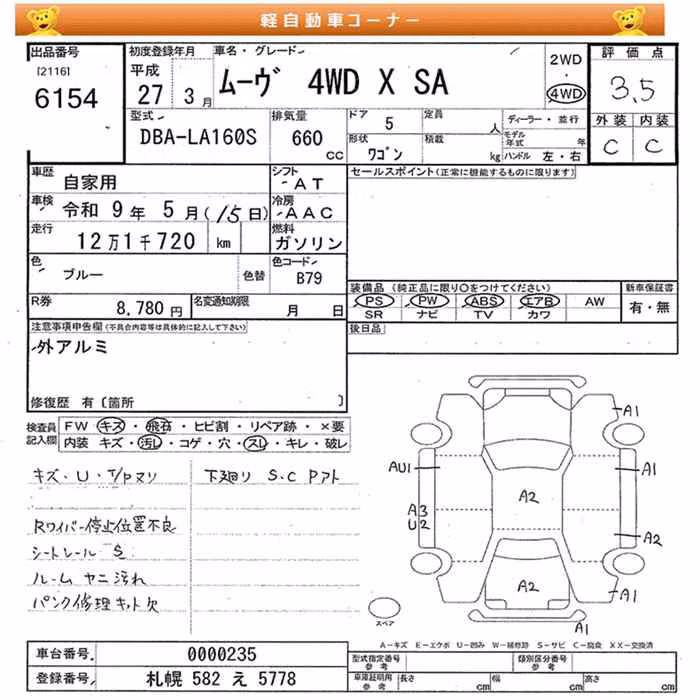 軽自動車コーナー
出品番号
[2116]
6154
初度登録年月
平成
27 3月
車名・グレード
ムーヴ 4WD X SA
2WD
・
4WD
評価点
3.5
外装 内装
C C
型式
DBA-LA160S
排気量
660
cc
ドア 5
定員 人
形状
ワゴン
積載 kg
ディーラー・並行
モデル年式 年
ハンドル 左・右
車歴
自家用
シフト
AT
セールスポイント(正常に機能するものに限ります)
車検
令和 9年 5月(15日)
冷房
AAC
走行
12万1千720 km
燃料
ガソリン
色
ブルー
色替
色コード
B79
装備品 (純正品に限り○をつけてください)
PS PW ABS エアB AW
SR ナビ TV カワ
新車保証書
有・無
R券
8,780円
名変通知期限
月 日
後日品
注意事項申告欄(不具合内容等は具体的に記入して下さい)
外アルミ
修復歴 有〔箇所 〕
検査員記入欄
FW キズ・飛石・ヒビ割・リペア跡・×要
内装 キズ・汚レ・コゲ・穴・スレ・キレ・破レ
キズ・U・T/Pヌリ
下廻り S.C Pアト
Rワイパー停止位置不良
シートレール S
ルーム ヤニ汚れ
パンク修理キット欠
A1
AU1
A1
A2
A3
U2
A2
A2
A1
A1
スペア
A-キズ E-エクボ U-凹み W-補修跡 S-サビ C-腐食 XX-交換済
車台番号
0000235
登録番号
札幌 582 え 5778
型式指定番号
参考
類別区分番号
参考
車庫証明用
参考
長さ cm
幅 cm
高さ cm